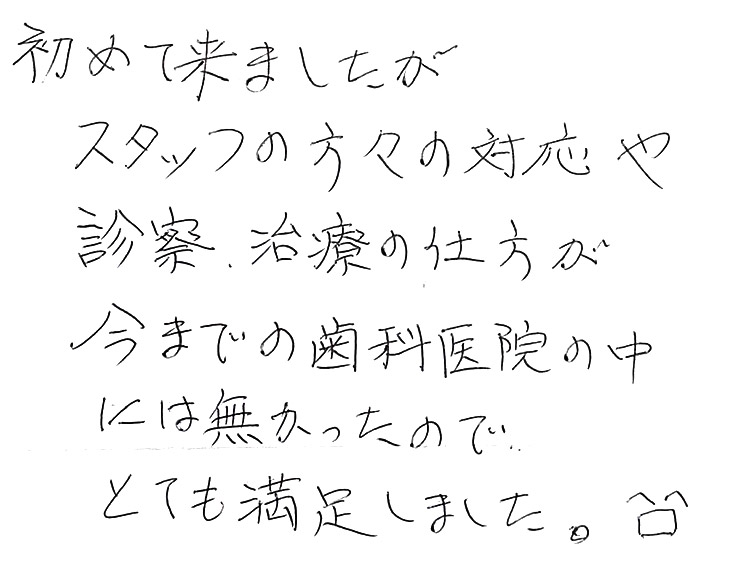 初めて来ましたが
スタッフの方々の対応や
診察、治療の仕方が
今までの歯科医院の中
には無かったので、
とても満足しました。^ロ^